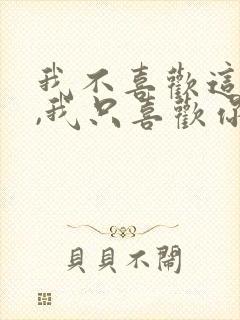 我不喜歡這
,我只喜歡你
貝貝不鬧